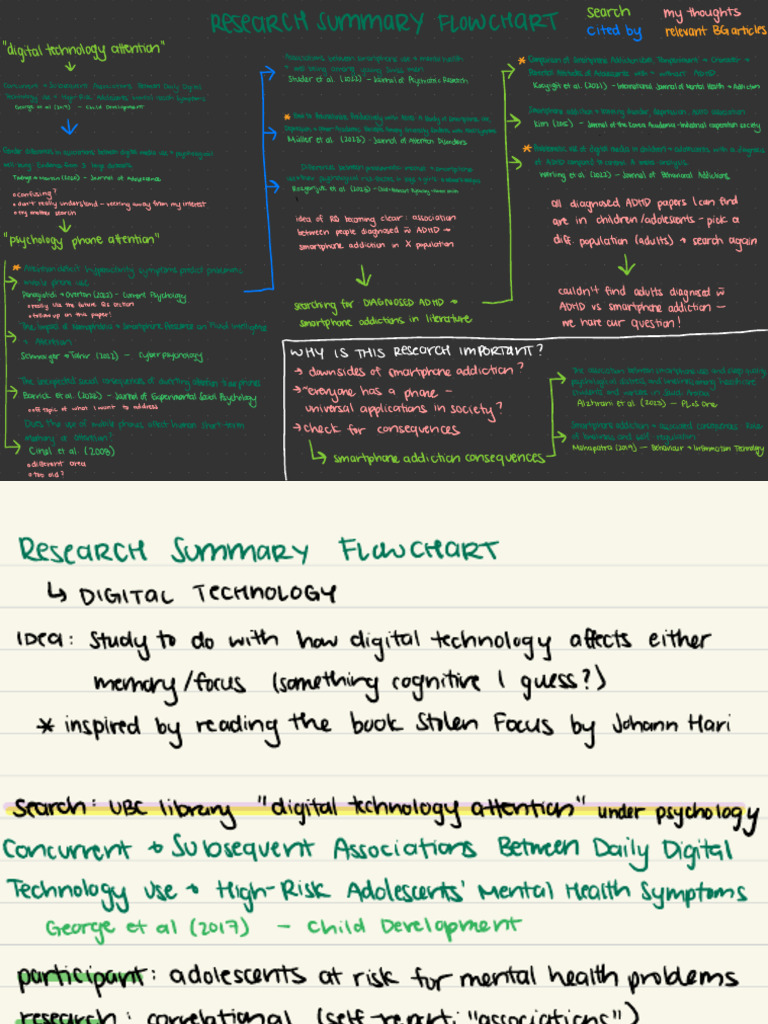 RESEARCH SUMMARY FLOWCHART
search
my thoughts
cited by
relevant BG articles
"digital technology attention"
Concurrent + Subsequent Associations Between Daily Digital
Technology Use + High-Risk Adolescents' Mental Health Symptoms
George et al (2017) — Child Development
Twenge + Martin (2020) — Journal of Adolescence
*confusing?
*don't really understand — veering away from my interest
*try another search
"psychology phone attention"
* Attention deficit hyperactivity symptoms predict problematic
mobile phone use
Panagiotidi + Overton (2022) — Current Psychology
*really like the future Qs section
*follow up on this paper!
The Impact of Nomophobia + Smartphone Presence on Fluid Intelligence
+ Attention
Schwaiger + Tahir (2022) — Cyberpsychology
The unexpected social consequences of diverting attention to our phones
Barrick et al. (2022) — Journal of Experimental Social Psychology
*off topic of what I want to address
Does the use of mobile phones affect human short-term
memory or attention?
Cinal et al. (2008)
*different area
*too old?
Associations between smartphone use + mental health
+ well being among young Swiss men
Studer et al. (2022) — Journal of Psychiatric Research
*
Müller et al. (2023) — Journal of Attention Disorders
idea of RQ becoming clear: association
between people diagnosed w̄ ADHD →
smartphone addiction in X population
searching for DIAGNOSED ADHD +
smartphone addictions in literature
* Comparison of Smartphone Addiction Rates, Temperament + Character +
Parental Attitudes of Adolescents with + without ADHD
Kocyigit et al. (2021) — International Journal of Mental Health + Addiction
Kim (2015) — Journal of the Korea Academia-Industrial cooperation society
* Problematic use of digital media in children + adolescents with a diagnosis
of ADHD compared to controls: A meta-analysis
Werling et al. (2022) — Journal of Behavioral Addictions
all diagnosed ADHD papers I can find
are in children/adolescents — pick a
diff. population (adults) + search again
couldn't find adults diagnosed w̄
ADHD vs smartphone addiction —
we have our question!
WHY IS THIS RESEARCH IMPORTANT?
→ downsides of smartphone addiction?
→ ~everyone has a phone —
universal applications in society?
→ check for consequences
smartphone addiction consequences
Alzhrani et al. (2023) — PLoS One
Smartphone addiction + associated consequences: Role
of loneliness and self regulation
Mahapatra (2019) — Behaviour + Information Technology
RESEARCH SUMMARY FLOWCHART
↳ DIGITAL TECHNOLOGY
IDEA: Study to do with how digital technology affects either
memory/focus (something cognitive I guess?)
* inspired by reading the book Stolen Focus by Johann Hari
Search: UBC library "digital technology attention" under psychology
Concurrent + Subsequent Associations Between Daily Digital
Technology Use + High-Risk Adolescents' Mental Health Symptoms
George et al (2017) — Child Development
participant: adolescents at risk for mental health problems
research: correlational (self-report; "associations")